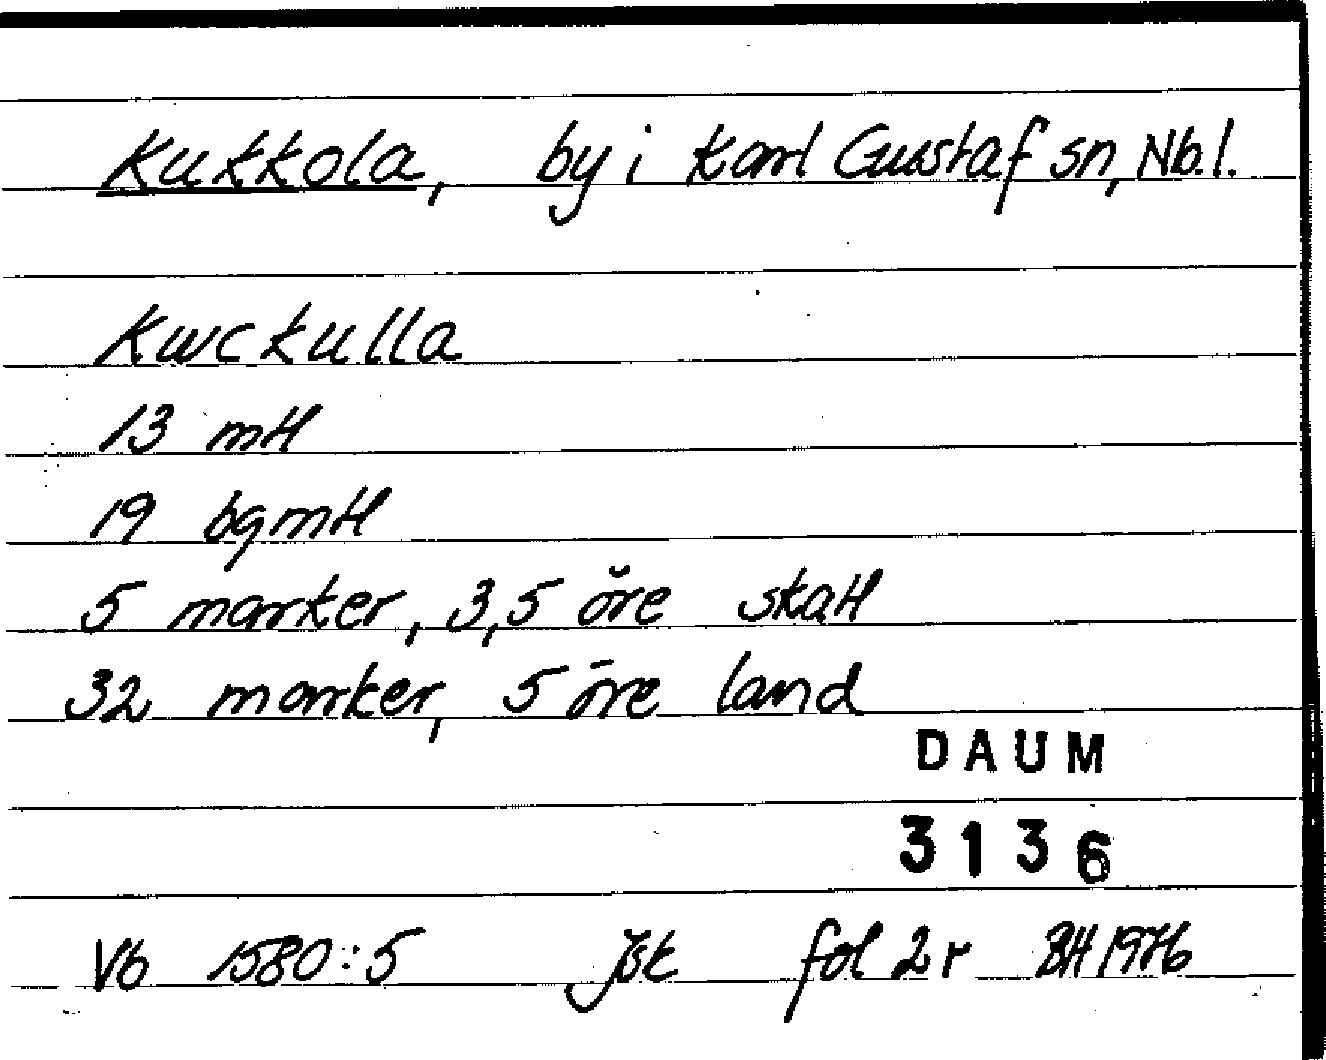 Kukkola, by i Karl Gustaf sn, Nb.l.
Kwckulla
13 mtl
19 bgmtl
5 marker, 3,5 öre skatt
32 marker, 5 öre land
DAUM
3136
Vb 1580:5 Jbk fol 2r BH 1976